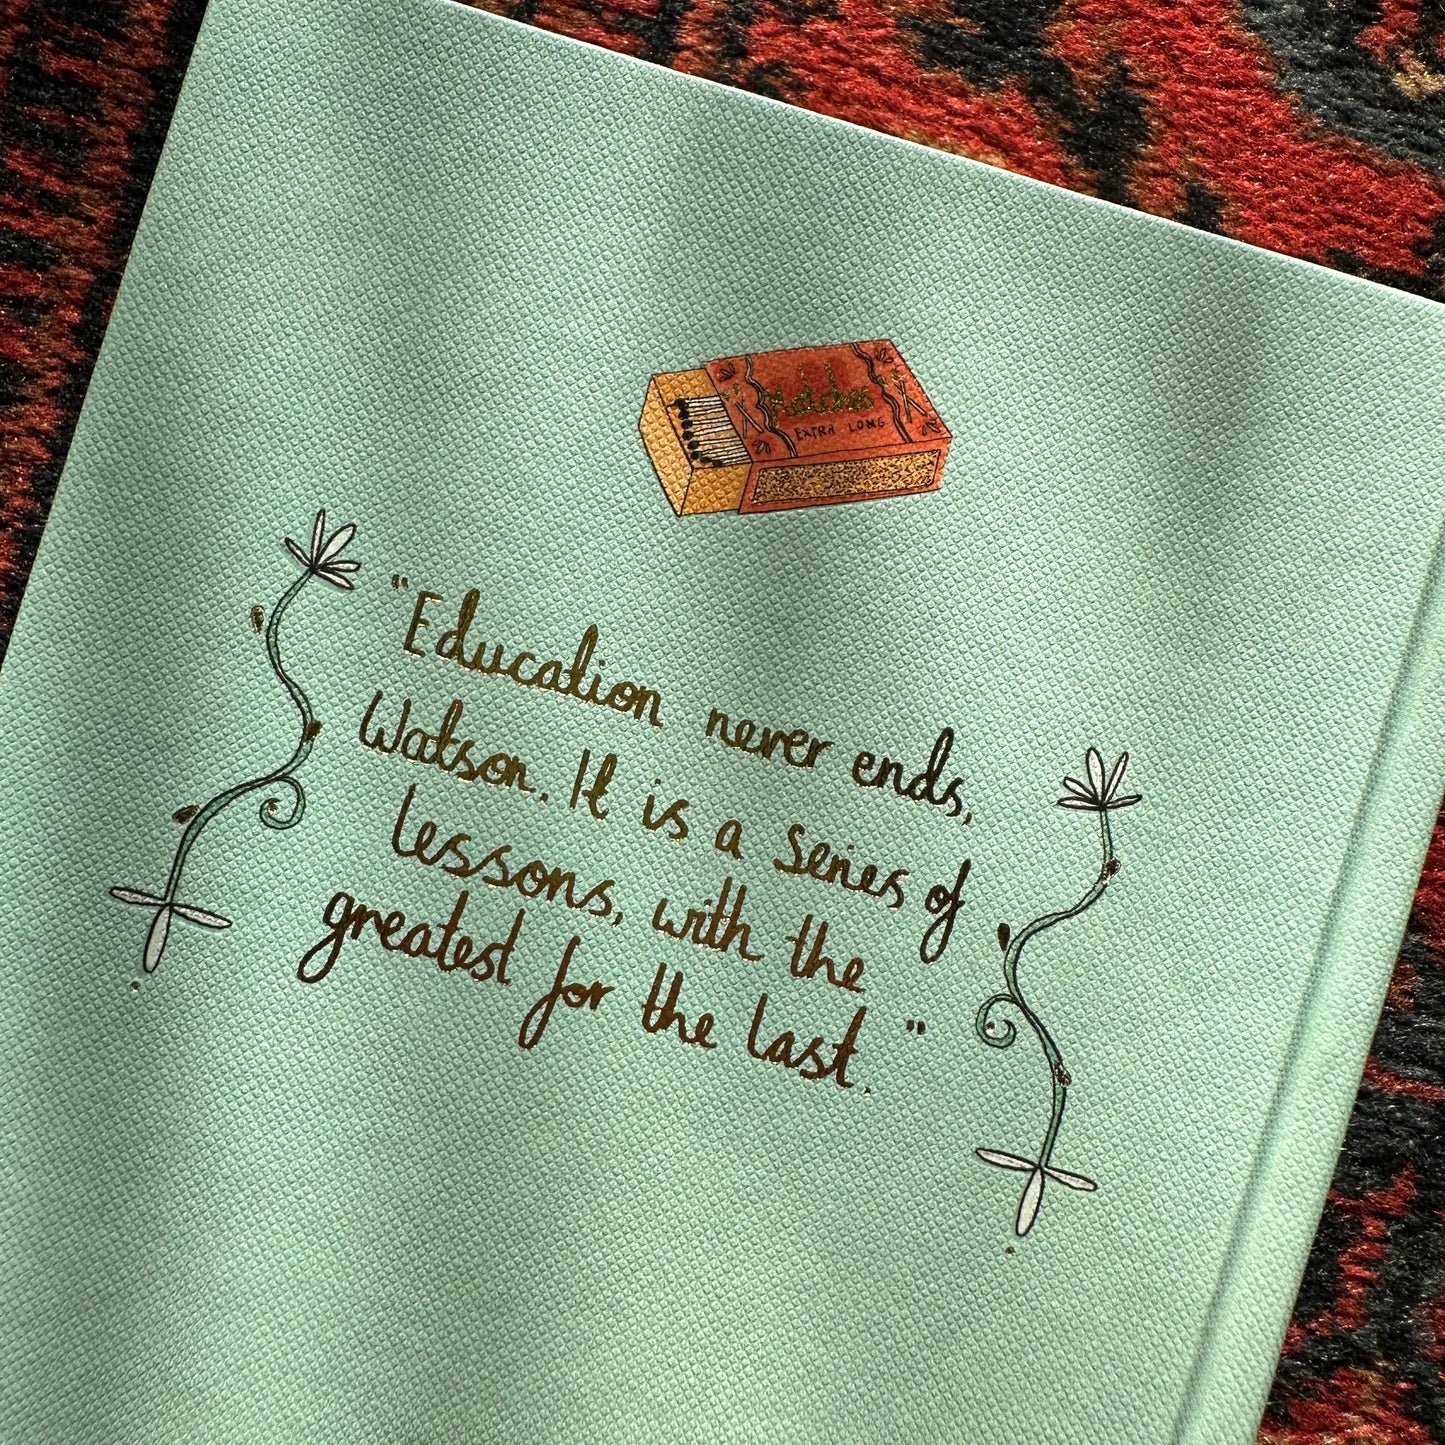 Matches
EXTRA LONG
"Education never ends,
Watson. It is a series of
lessons, with the
greatest for the last."